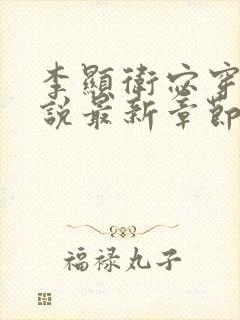 李顯衛宓穿
說最新章節
福祿丸子